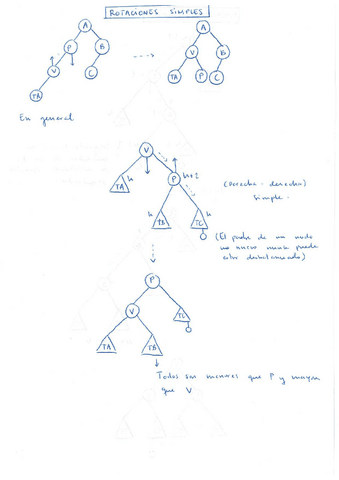 ROTACIONES SIMPLES
A
A
P
B
V
B
V
C
TA
P
C
TA
En general
V
P
h+2
h
TA
(derecha - derecha)
simple.
h
h
TB
TC
(El padre de un nodo
no nuevo nunca puede
estar desbalanceado)
P
V
TC
TA
TB
Todos son menores que P y mayores
que V